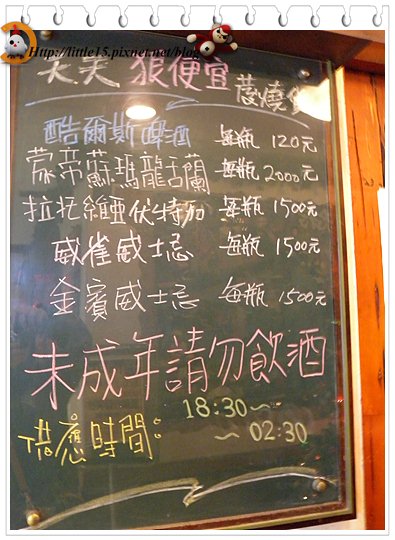 Http://little15.pixnet.net/blog
天天 狠便宜
酷爾斯啤酒 每瓶 120元
蒙帝蘇瑪龍舌蘭 每瓶 2000元
拉托維亞伏特加 每瓶 1500元
威雀威士忌 每瓶 1500元
金賓威士忌 每瓶 1500元
未成年請勿飲酒
供應時間: 18:30~
~02:30